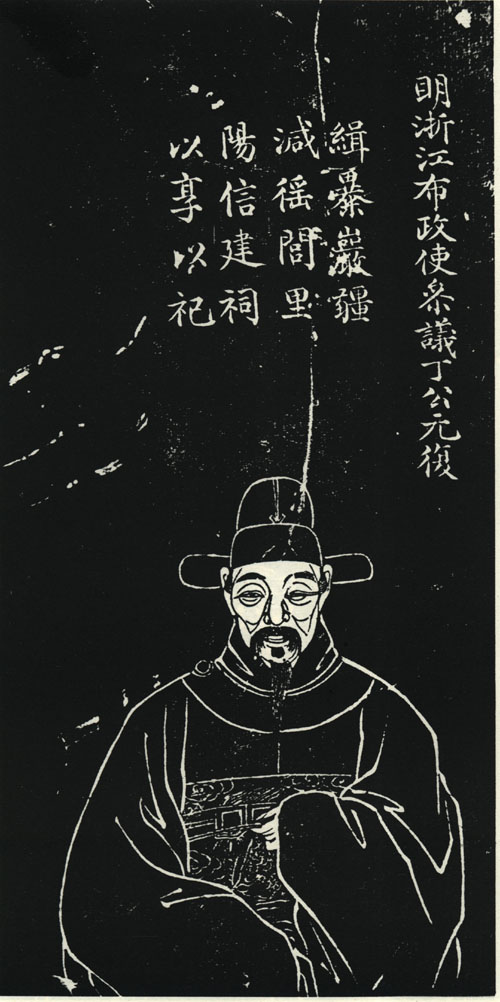 明浙江布政使叅議丁公元復
緝暴巖疆
減徭閭里
陽信建祠
以享以祀